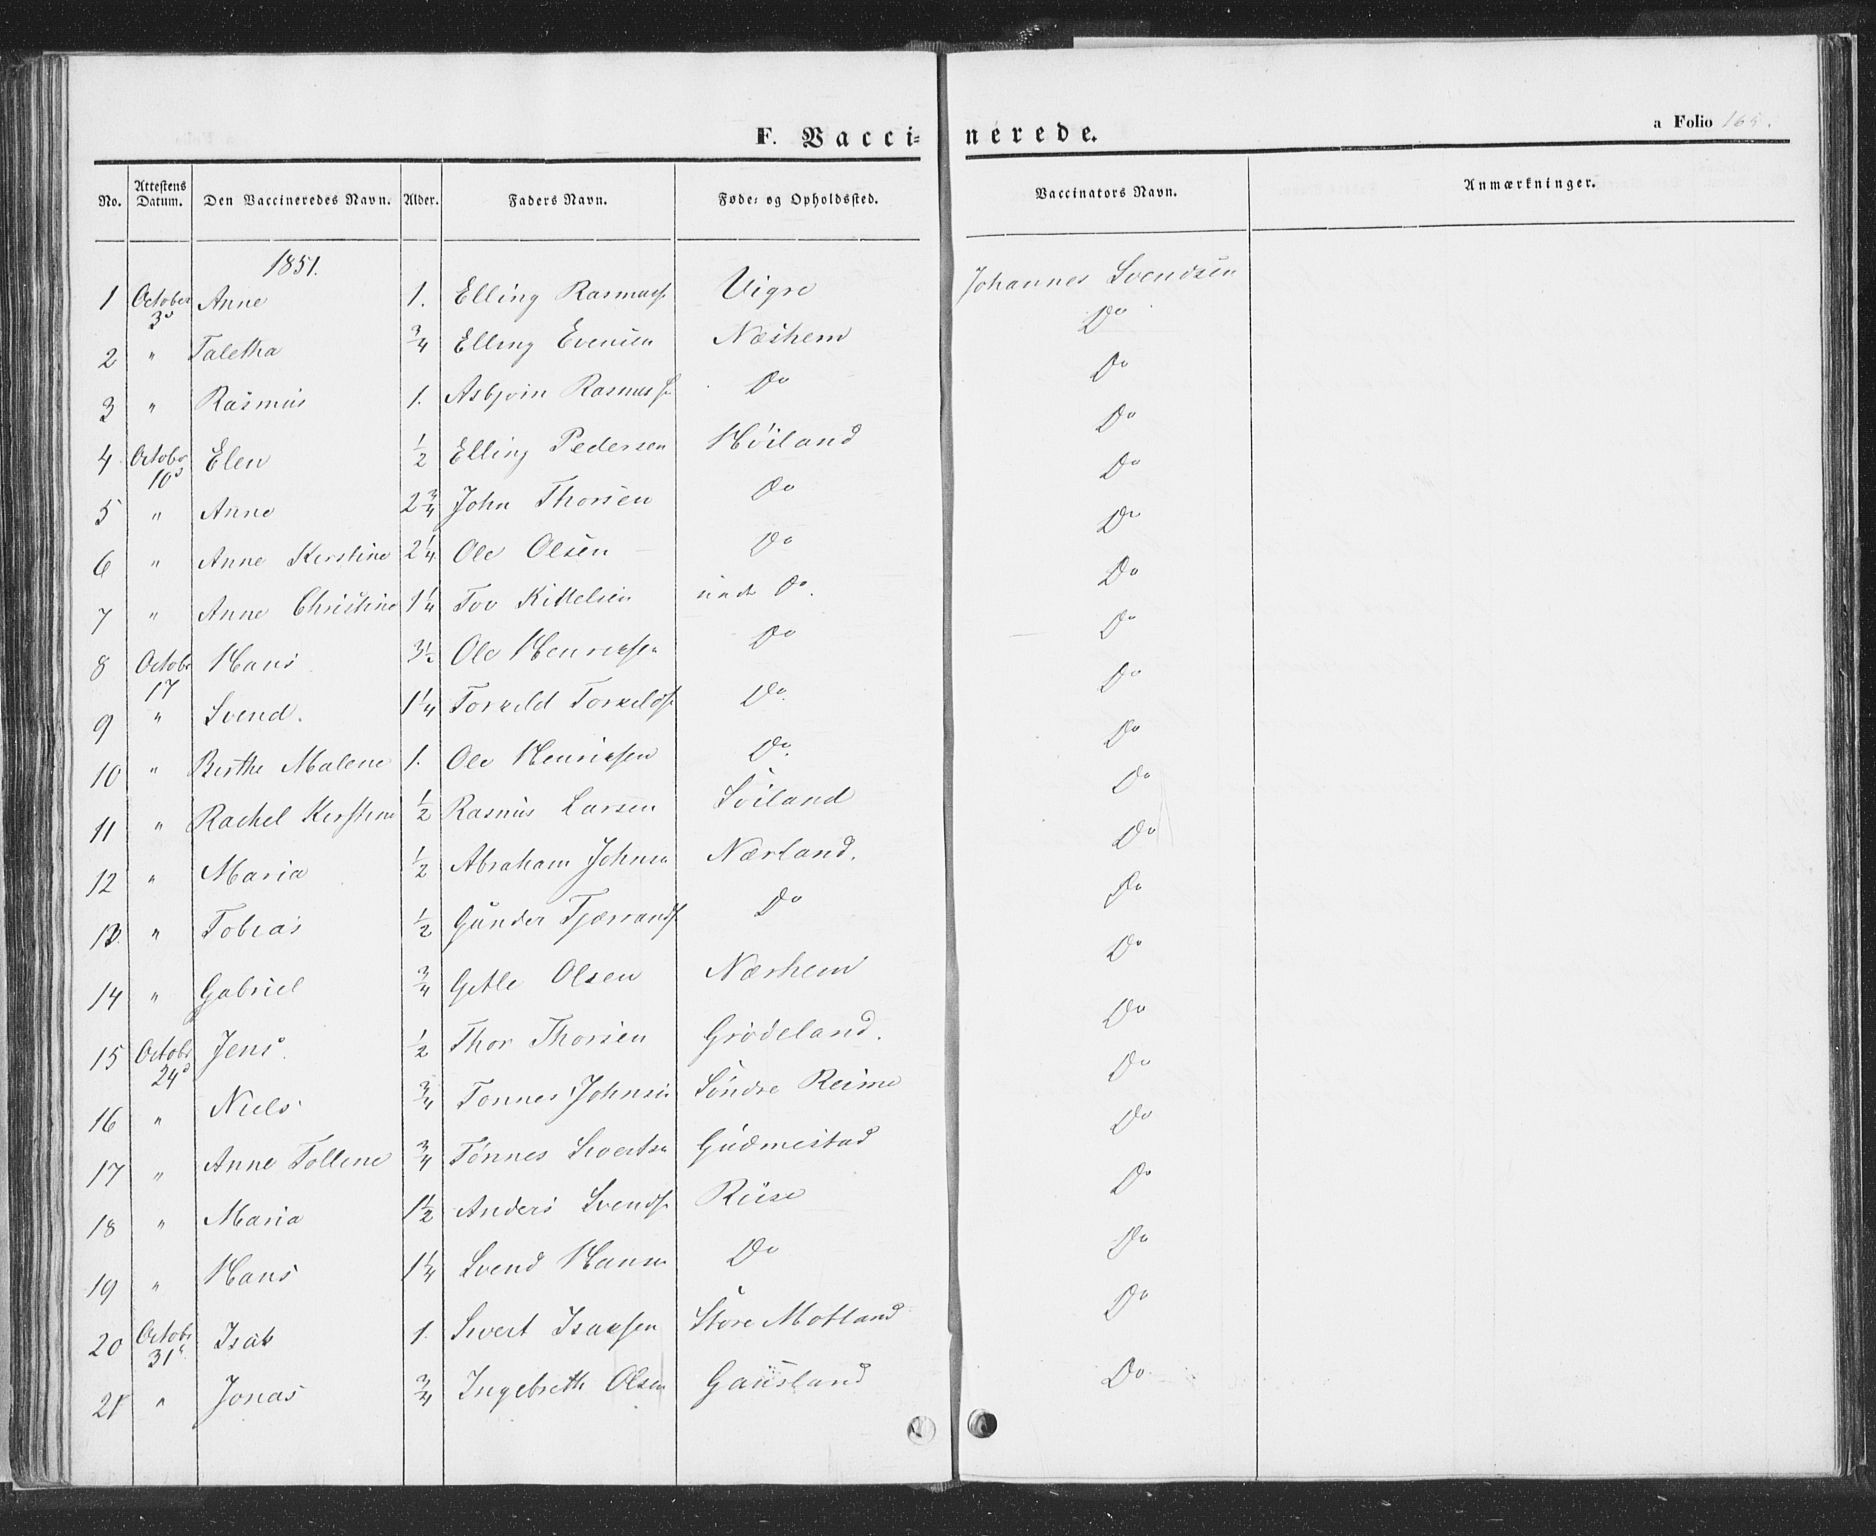 F. Vaccinerede.
a Folio 165.
No. Attestens Datum. Den Vaccineredes Navn. Alder. Faders Navn. Føde- og Opholdssted. Vaccinators Navn. Anmærkninger.
1851.
1 October 3d Anne 1. Elling Rasmuss. Vigre Johannes Svendsen
2 " Taletha 3/4 Elling Evensen Næshem Do
3 " Rasmus 1. Asbjørn Rasmuss. Do Do
4 October 10d Elen 1/2 Elling Pedersen Høiland Do
5 " Anne 2 3/4 John Thorsen Do Do
6 " Anne Kerstine 2 1/4 Ole Olsen Do Do
7 " Anne Christine 1 1/4 Tov Kittelsen Do. Do
8 Octobr 17 Hans 3 1/2 Ole Henriksen Do Do
9 " Svend. 1 1/4 Torkeld Torkelds. Do. Do
10 " Berthe Malene 1. Ole Henriksen Do. Do
11 " Rachel Kerstine 1/2 Rasmus Larsen Søiland Do
12 " Maria 1/2 Abraham Johnsen Nærland. Do
13 " Tobias 1/2 Gunder Tjærrands. Do Do
14 " Gabriel 3/4 Gitle Olsen Nærhem Do
15 Octobr 24d Jens. 1/2 Thor Thorsen Grødeland. Do
16 " Niels 3/4 Tønnes Johnsen Søndre Reime Do
17 " Anne Tollene 3/4 Tønnes Sivertsen Gudmestad Do
18 " Maria 1 1/2 Anders Svends. Risse Do
19 " Hans 1 1/4 Svend Hansen Do Do
20 Octobr 31d Isak 1. Sivert Isaksen Store Motland Do
21 " Jonas 3/4 Ingebreth Olsen Gausland Do.